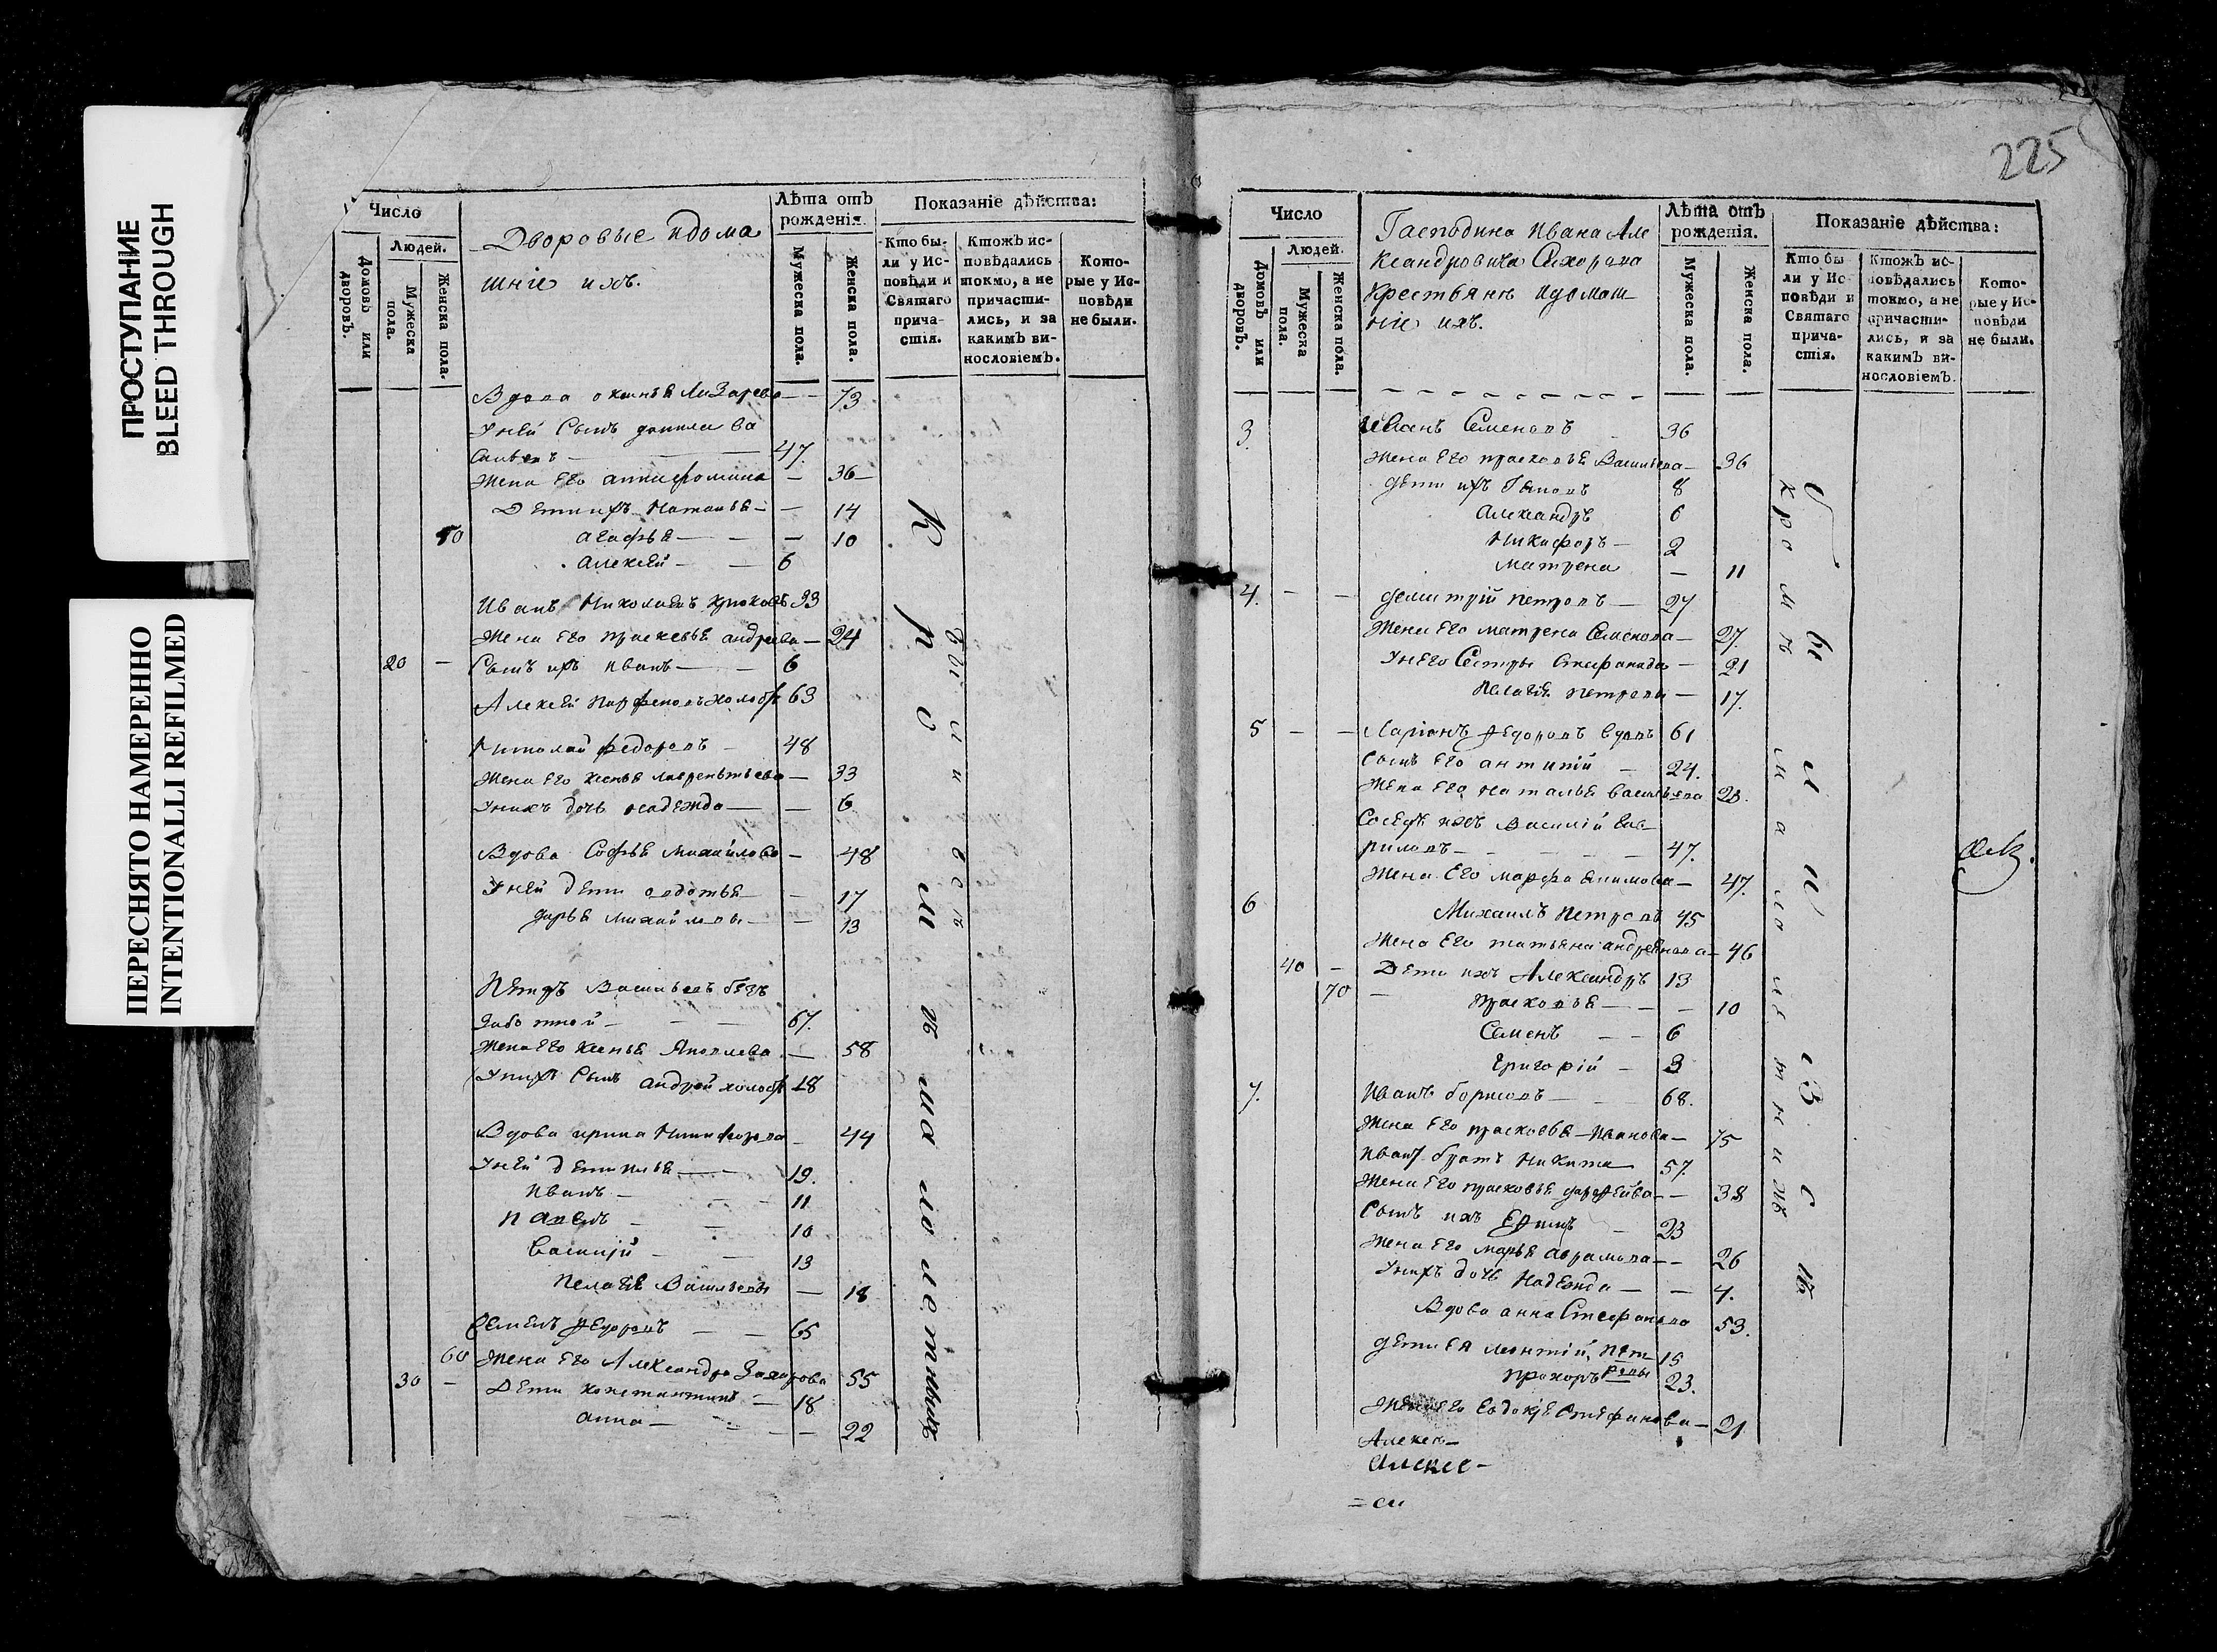 ПРОСТУПАНИЕ
BLEED THROUGH
ПЕРЕСНЯТО НАМЕРЕННО
INTENTIONALLI REFILMED
Число
Людей.
Домовъ или дворовъ.
Мужеска пола.
Женска пола.
Дворовые идома
шніе ихъ.
Лѣта отъ
рожденія.
Мужеска пола.
Женска пола.
Показаніе дѣйства:
Кто бы-
ли у Ис-
повѣди и
Святаго
прича-
стія.
Ктожъ ис-
повѣдались
токмо, а не
причасти-
лись, и за
какимъ ви-
нословіемъ.
Кото-
рые у Ис-
повѣди
не были.
Вдова Лазарева — 73
Уней Сынъ данила Ва
сильевъ — 47.
Жена Его анна фомина — 36
Дети ихъ Наталья — 14
50 агафья — 10
алексей — 6
Иванъ Николаевъ Крюковъ 33
Жена Его праскевья андреева — 24
20 — Сынъ ихъ иванъ — 6
Алексей Парфеновъ холостъ 63
Николай федоровъ — 48
Жена Его ксенья лаврентьева — 33
Унихъ дочь надежда — 6
Вдова Софья михайлова — 48
Уней дети авдотья — 17
дарья михайловы — 13
Петръ Васильевъ безъ
заботной — 67.
Жена Его ксенья Яковлева — 58
Унихъ Сынъ андрей холостъ 28
Вдова ирина Никифорова — 44
Уней дети илья — 19.
иванъ — 11
павелъ — 10
Василій — 13
пелагея Васильевы — 18
Семенъ федоровъ — 65
60 Жена Его Александра Захарова 55
30 — Дети константинъ — 18
анна — 22
Кромѣ малолетныхъ
225
Число
Людей.
Домовъ или дворовъ.
Мужеска пола.
Женска пола.
Господина Ивана Але
ксандровича Сахарова
Крестьяне идомаш
ніе ихъ.
Лѣта отъ
рожденія.
Мужеска пола.
Женска пола.
Показаніе дѣйства:
Кто бы
ли у Ис
повѣди и
Святаго
прича-
стія.
Ктожъ ис-
повѣдались
токмо, а не
причасти-
лись, и за
какимъ ви-
нословіемъ.
Кото-
рые у Ис-
повѣди
не были.
3. Иванъ Семеновъ 36
Жена Его прасковья Васильева — 36
дети ихъ 8
Александръ 6
Никифоръ — 2
Матрена — 11
4. — — димитрій петровъ — 27
Жена Его матрена Семенова — 27.
УнЕго Сестры Стефанида — 21
Пелагея петровы — 17.
5 — — Ларіонъ федоровъ вдовъ 61
Сынъ Его антипій — 24.
Жена Его наталья васильева
Соседъ ихъ Василій Гав-
риловъ — 47.
Жена Его марфа якимова — 47.
6 Михаилъ петровъ 45
Жена Его татьяна андреянова — 46
40 — Дети ихъ Александръ 13
70 — прасковья — 10
Семенъ — 6
григорій — 3
7. Иванъ борисовъ — 68.
Жена Его прасковья Иванова — 75
ивану братъ никита 57.
Жена Его прасковья — 38
Сынъ ихъ Ефимъ 23
Жена Его марья аврамова — 26
Унихъ дочь надежда — 4.
Вдова анна Стефанова 53.
дети ея леонтій, пет- 15
прохоръ ровы 23.
Жена Его евдокея Стефанова — 21
Алексе-
Алексе-
= си
Кромѣ малолетнихъ